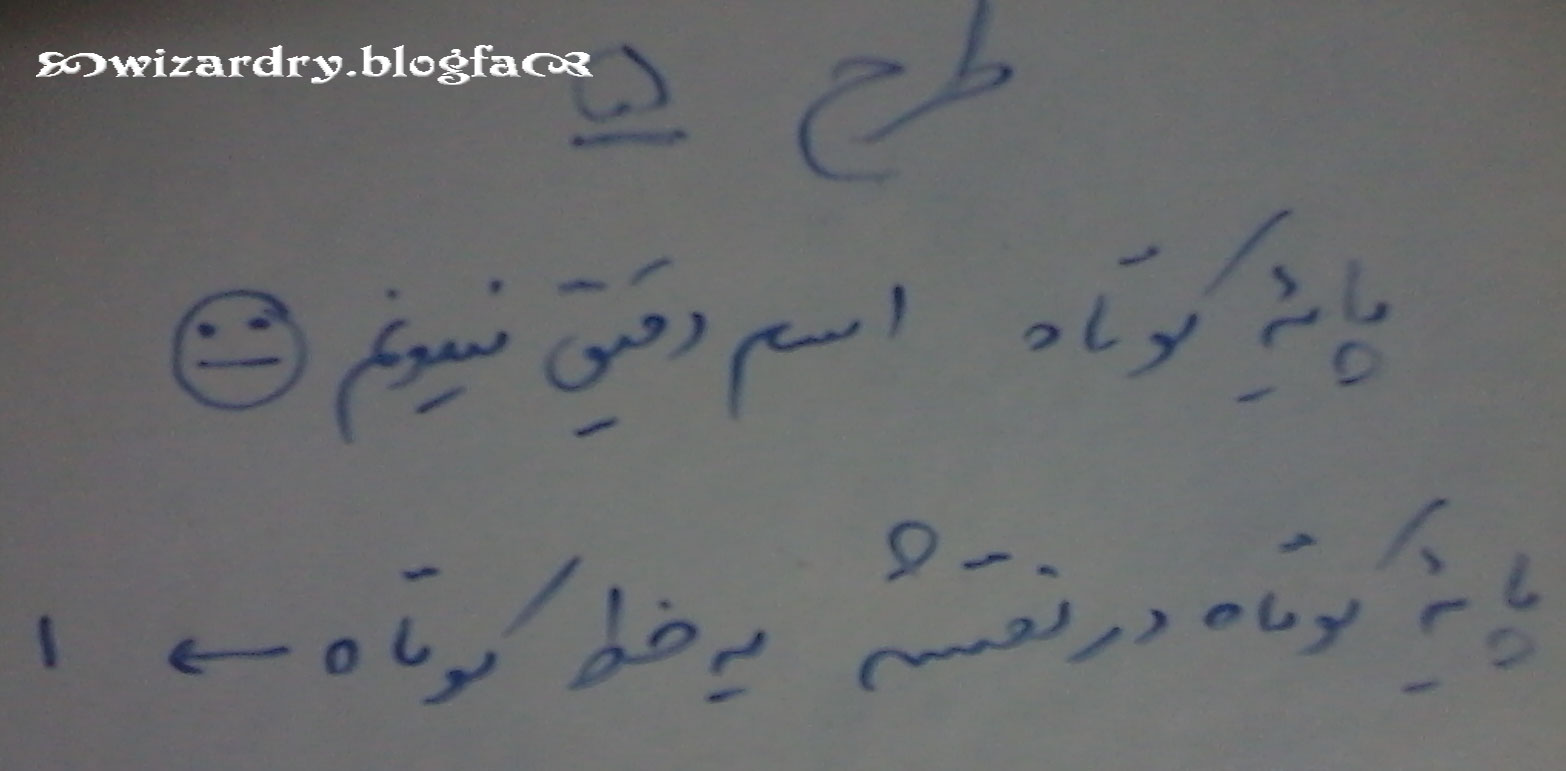 wizardry.blogfa
طرح ۵
پایهٔ کوتاه اسم دقیق نمیدونم
پایهٔ کوتاه در نقشه یه خط کوتاه ← ۱